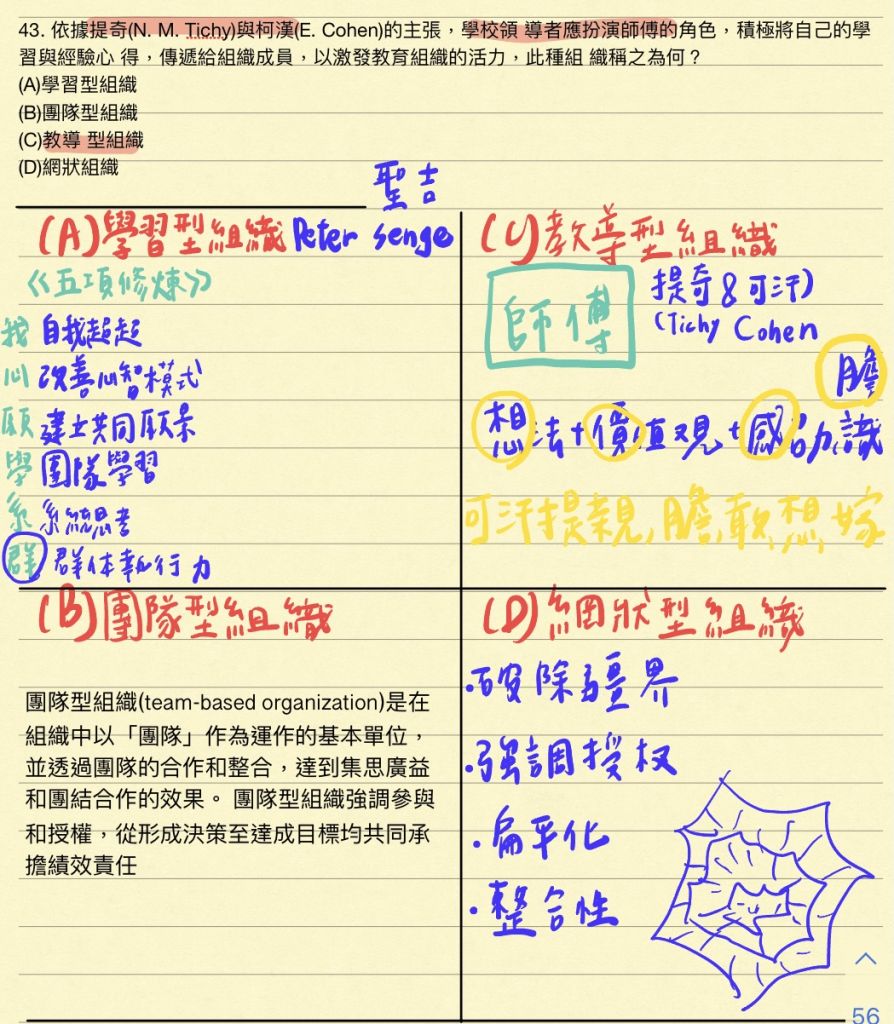 43. 依據提奇(N. M. Tichy)與柯漢(E. Cohen)的主張，學校領 導者應扮演師傅的角色，積極將自己的學
習與經驗心 得，傳遞給組織成員，以激發教育組織的活力，此種組 織稱之為何？
(A)學習型組織
(B)團隊型組織
(C)教導 型組織
(D)網狀組織
聖吉
(A)學習型組織 Peter senge
《五項修煉》
我 自我超越
心 改善心智模式
願 建立共同願景
學 團隊學習
系 系統思考
群 群体執行力
(C)教導型組織
師傅
提奇&可汗)
(Tichy Cohen
膽
想法+價值观+感召力,識
可汗提親,膽敢想嫁
(B)團隊型組織
團隊型組織(team-based organization)是在
組織中以「團隊」作為運作的基本單位，
並透過團隊的合作和整合，達到集思廣益
和團結合作的效果。 團隊型組織強調參與
和授權，從形成決策至達成目標均共同承
擔績效責任
(D)網狀型組織
·破除疆界
·強調授权
·扁平化
·整合性
56